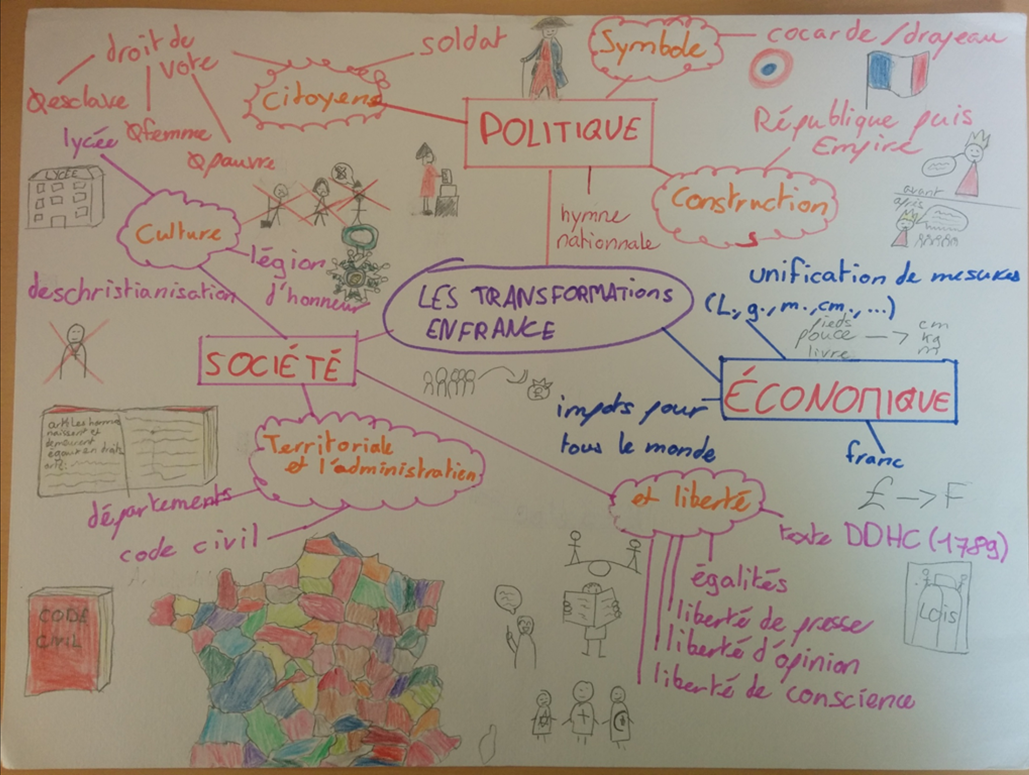 droit de
vote
soldat
Symbole
cocarde/drapeau
citoyens
Øesclave
lycée
Øfemme
Øpauvre
POLITIQUE
République puis
Empire
LYCÉE
Construction
avant
après
Culture
hymne
nationnale
légion
d'honneur
deschristianisation
LES TRANSFORMATIONS
EN FRANCE
unification de mesures
(L., g., m., cm., ...)
pieds
pouce
livre
→
cm
kg
m
SOCIÉTÉ
ÉCONOMIQUE
impots pour
tous le monde
franc
£ → F
art1 Les hommes
naissent et
demeurent
égaux en droits
Territoriale
et l'administration
départements
code civil
et liberté
texte DDHC (1789)
égalités
liberté de presse
liberté d'opinion
liberté de conscience
LOIS
CODE
CIVIL